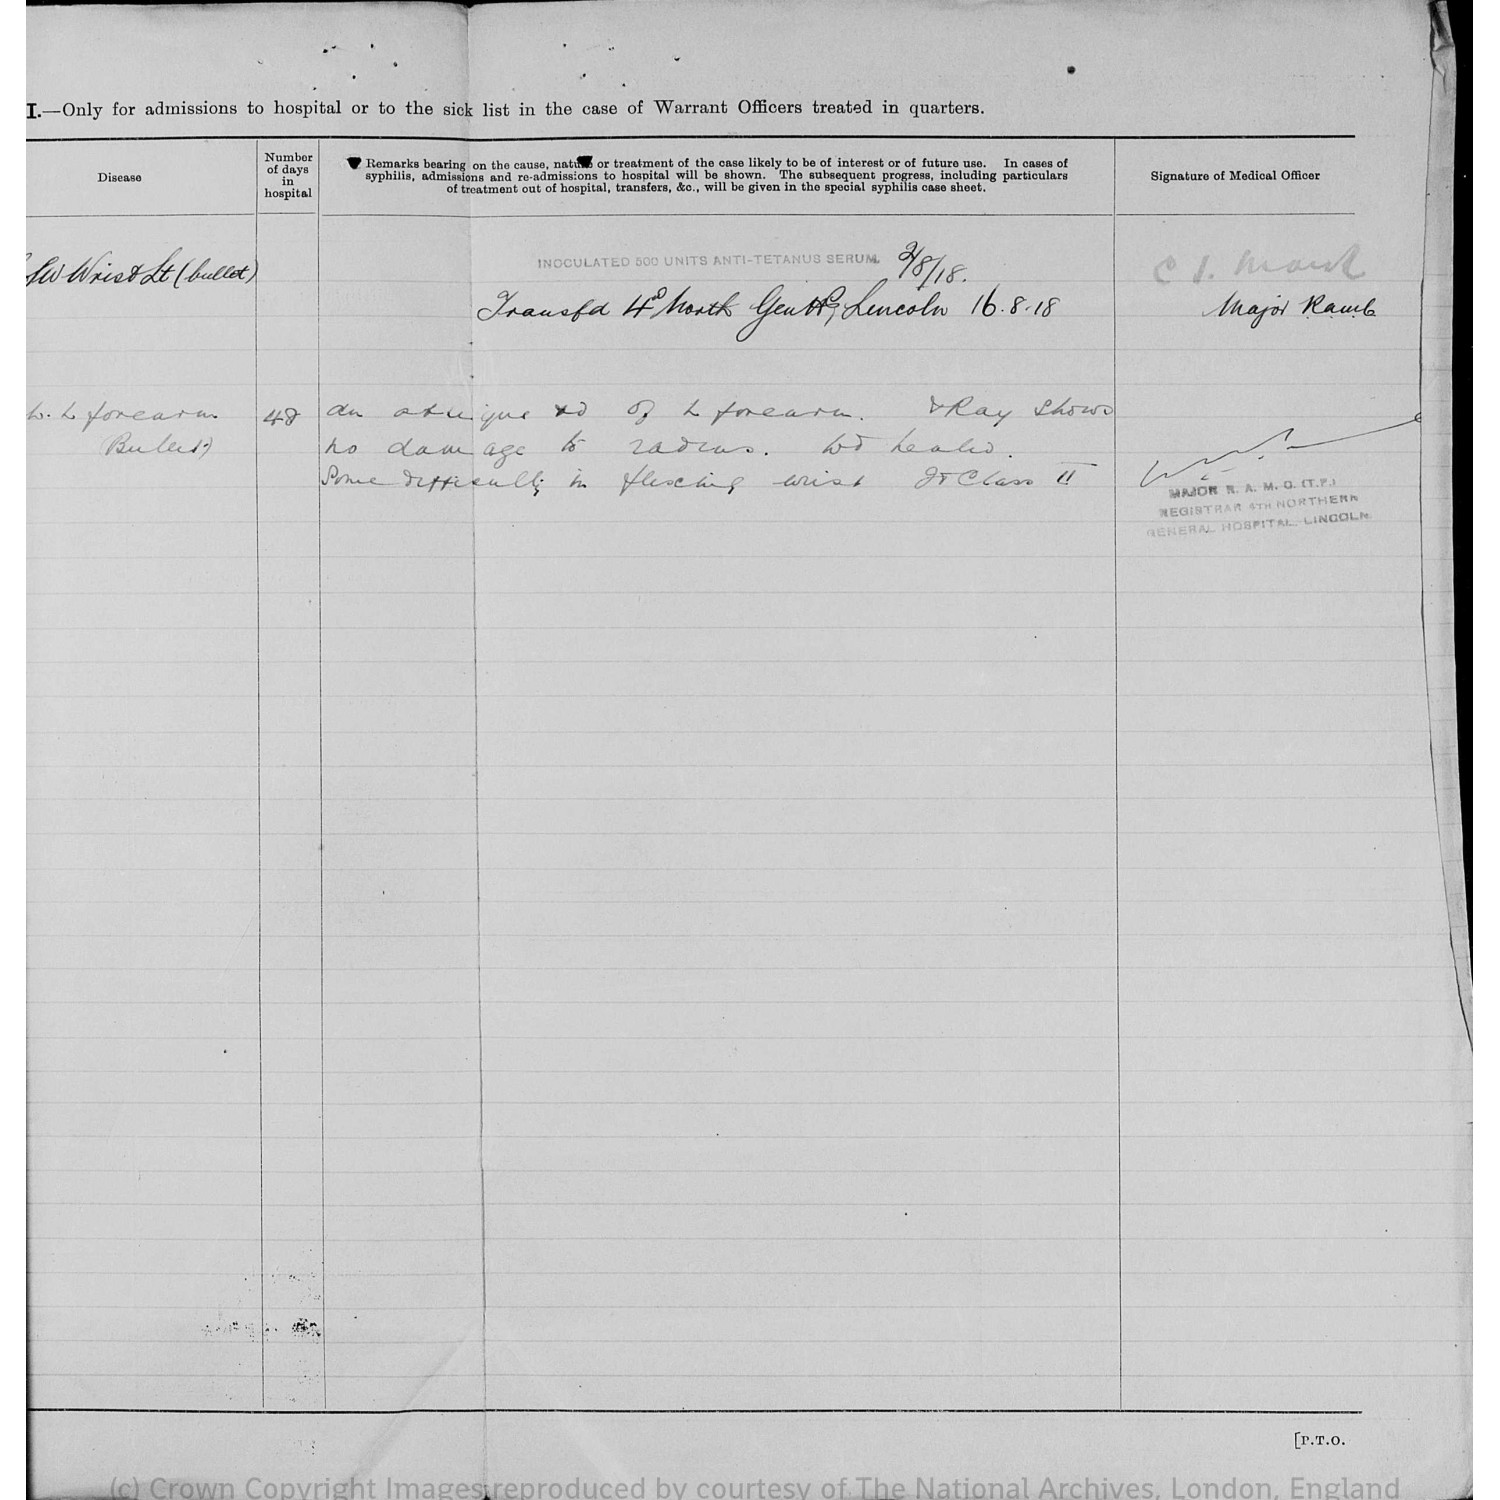 I.—Only for admissions to hospital or to the sick list in the case of Warrant Officers treated in quarters.
Disease
Number of days in hospital
Remarks bearing on the cause, nature or treatment of the case likely to be of interest or of future use. In cases of
syphilis, admissions and re-admissions to hospital will be shown. The subsequent progress, including particulars
of treatment out of hospital, transfers, &c., will be given in the special syphilis case sheet.
Signature of Medical Officer
GSW Wrist Lt (bullet)
INOCULATED 500 UNITS ANTI-TETANUS SERUM. 2/8/18.
Transfd 4th North Gen Hp, Lincoln 16.8.18
Major Ramc
W. L forearm 48 An oblique wd of L forearm. X Ray shows
Bullet) no damage to radius. Wd healed.
Some difficulty in flexing wrist Class II
MAJOR R. A. M. C. (T.F.)
REGISTRAR 4TH NORTHERN
GENERAL HOSPITAL, LINCOLN.
[P.T.O.
(c) Crown Copyright Images reproduced by courtesy of The National Archives, London, England